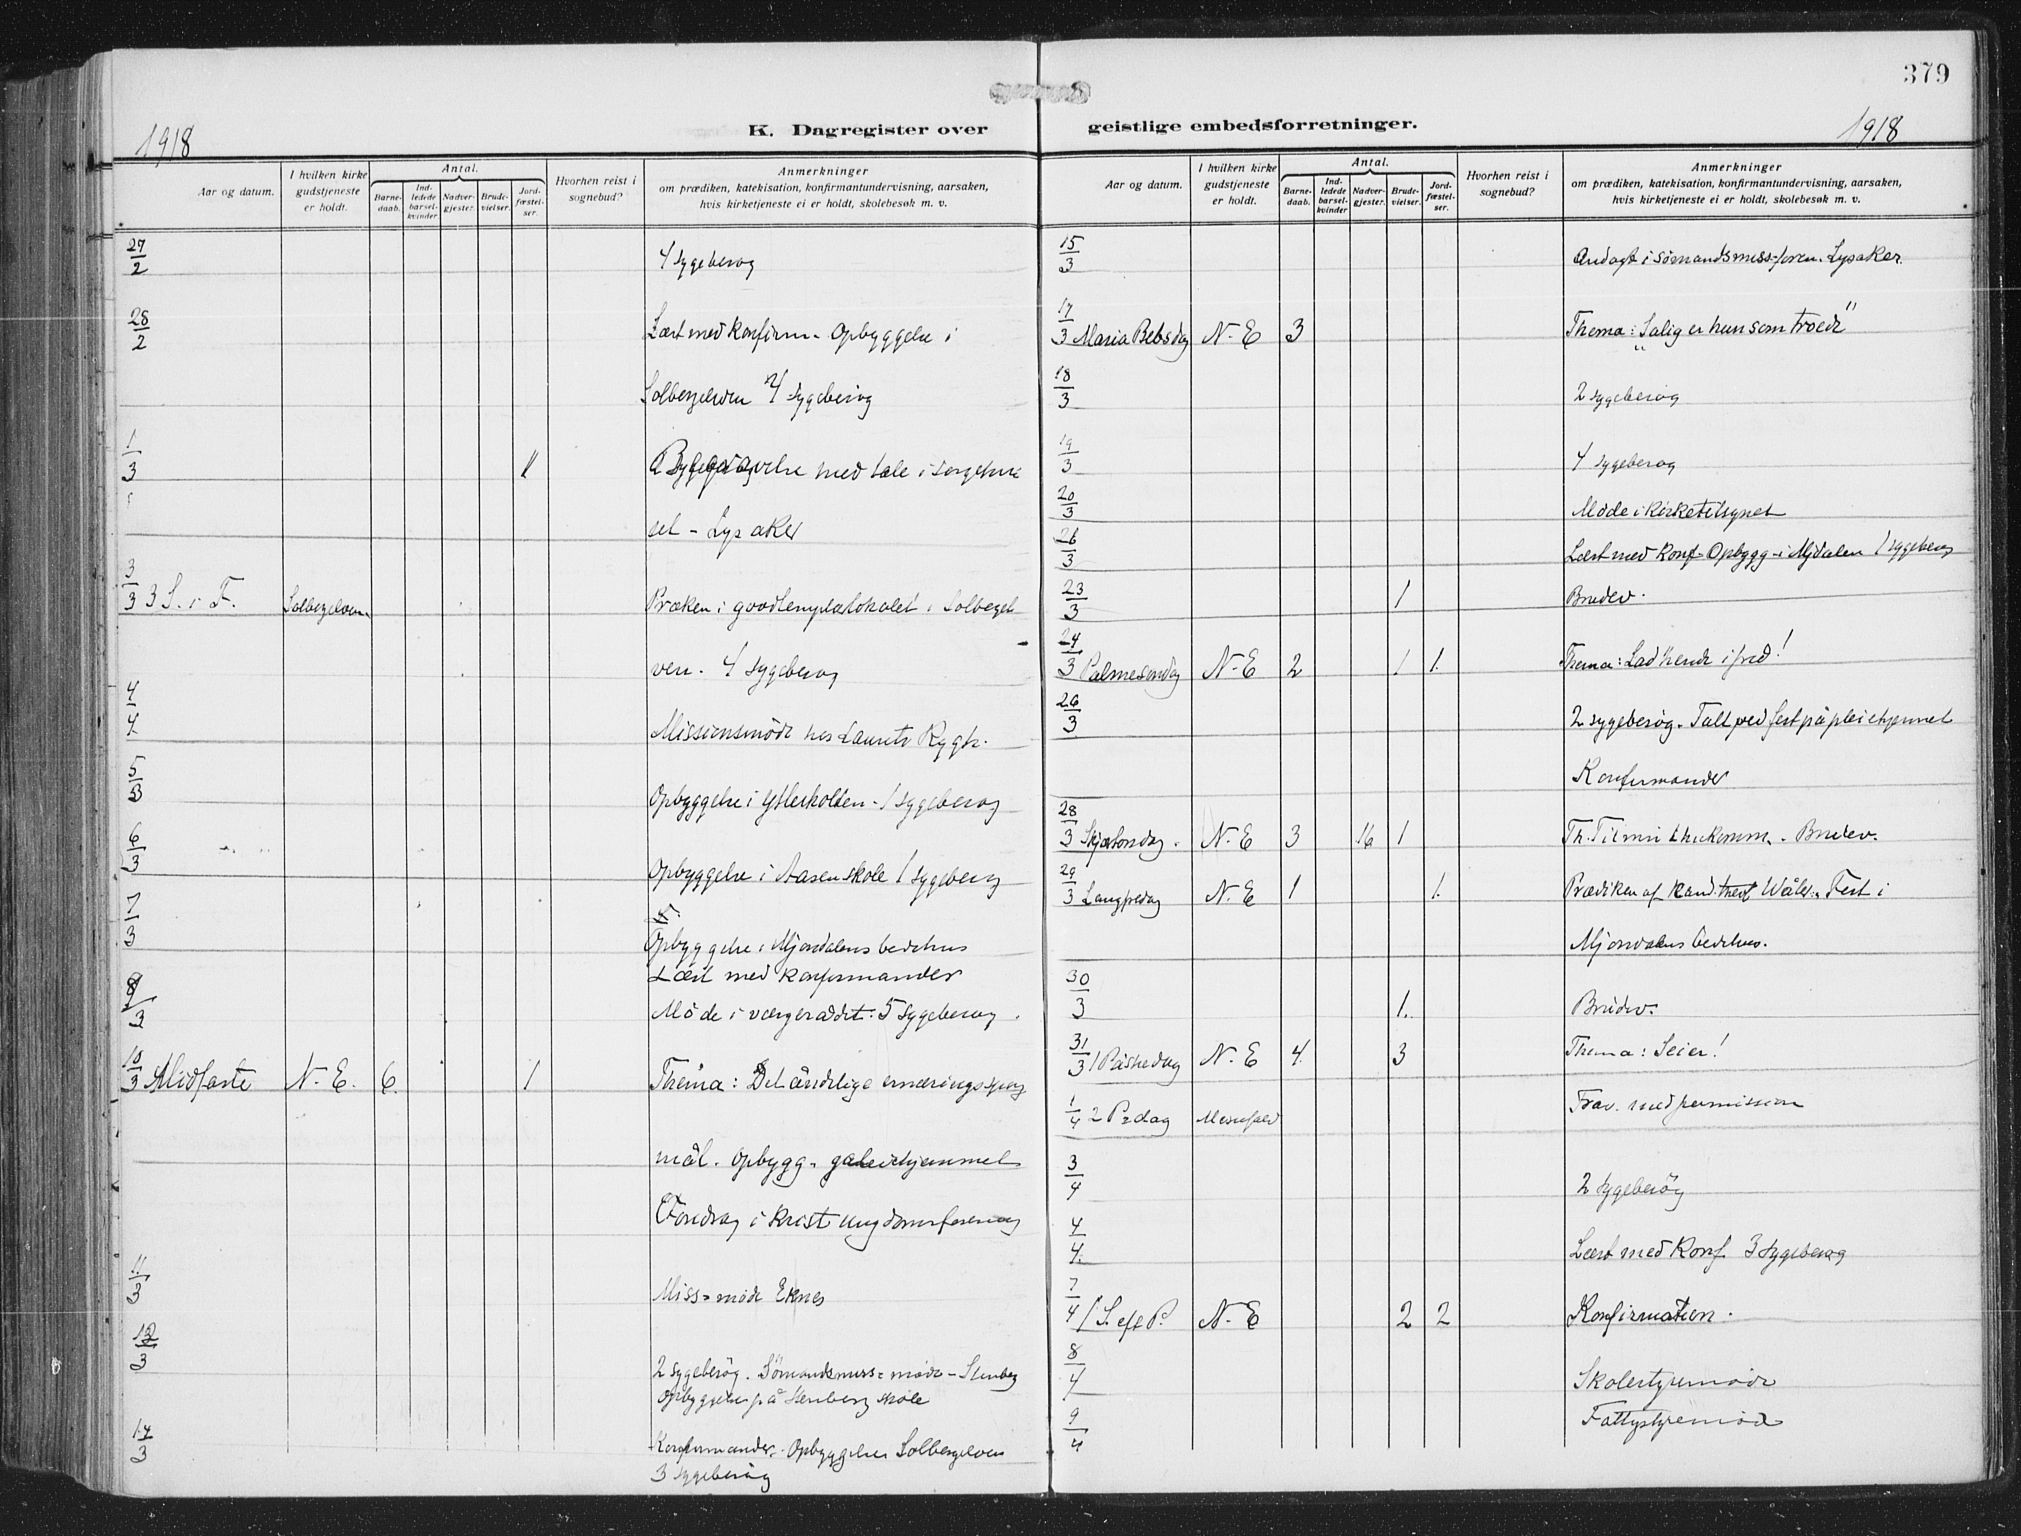 379
1918
K. Dagregister over
Aar og datum.
I hvilken kirke gudstjeneste er holdt.
Antal.
Barnedaab.
Indledede barselkvinder
Nadvergjester.
Brudevielser.
Jordfæstelser.
Hvorhen reist i sognebud?
Anmerkninger
om prædiken, katekisation, konfirmantundervisning, aarsaken,
hvis kirketjeneste ei er holdt, skolebesøk m. v.
27/2 4 sygebesøg
28/2 Læst med konfirm. Opbyggelse i
Solbergelven 4 sygebesøg
1/3 1 med tale i sørgehu
set - Lysaker
3/3 3 S. i F. Solbergelven Præken i goodtemplarlokalet i Solbergel
ven. 4 sygebesøg
4/4 Missionsmöde hos Laurits Rygh.
5/3 Opbyggelse i - 1 sygebesøg
6/3 Opbyggelse i Aasen skole 1 sygebesøg
7/3 Opbyggelse i Mjøndalens bedehus
Læst med konfirmander
9/3 Möde i værgeraadet. 5 sygebesøg.
10/3 Midfaste N. E. 6. 1 Thema: Det åndelige ernæringsspørg
mål. Opbygg.
Foredrag i Krist ungdomsforening
11/3 Miss = möde Eknes
12/3 2 sygebesög. Sömandsmiss = möde - Stenberg
Opbyggelse på Stenberg skole
14/3 Konfirmander. Opbyggelse Solbergelven
3 sygebesög
geistlige embedsforretninger.
1918
Aar og datum.
I hvilken kirke gudstjeneste er holdt.
Antal.
Barnedaab.
Indledede barselkvinder
Nadvergjester.
Brudevielser.
Jordfæstelser.
Hvorhen reist i sognebud?
Anmerkninger
om prædiken, katekisation, konfirmantundervisning, aarsaken,
hvis kirketjeneste ei er holdt, skolebesøk m. v.
15/3 Andagt i sømandsmiss-foren. Lysaker.
17/3 Maria Bebsdag N. E 3 Thema: "Salig er hun som troede"
18/3 2 sygebesøg
19/3 4 sygebesøg
20/3 Möde i kirketilsynet
Læst med konf - Opbygg - i Mjdalen 1 sygebesøg
23/3 1 Brudev.
24/3 Palmesøndag N. E 2 1 1. Thema: Lad hende i fred!
26/3 2 sygebesøg. Talt ved fest på pleiehjemmet
Konfirmander
28/3 Skjærtorsdag. N. E 3 16 1 Th. Til min ihukomm. - Brudev.
29/3 Langfredag N. E 1 1. Prædiken af kand. theol Fest i
Mjøndalens bedehus.
30/3 1. Brudev.
31/3 1 Påskedag N. E 4. 3 Thema: Seier!
1/4 2 P=dag Messefald Frav. med permission
3/4 2 sygebesög
4/4. Læst med Konf. 3 sygebesøg
7/4 1 S. eft P. N. E 2 2 Konfirmation.
8/4 Skolestyremöde
9/4 Fattigstyremöde